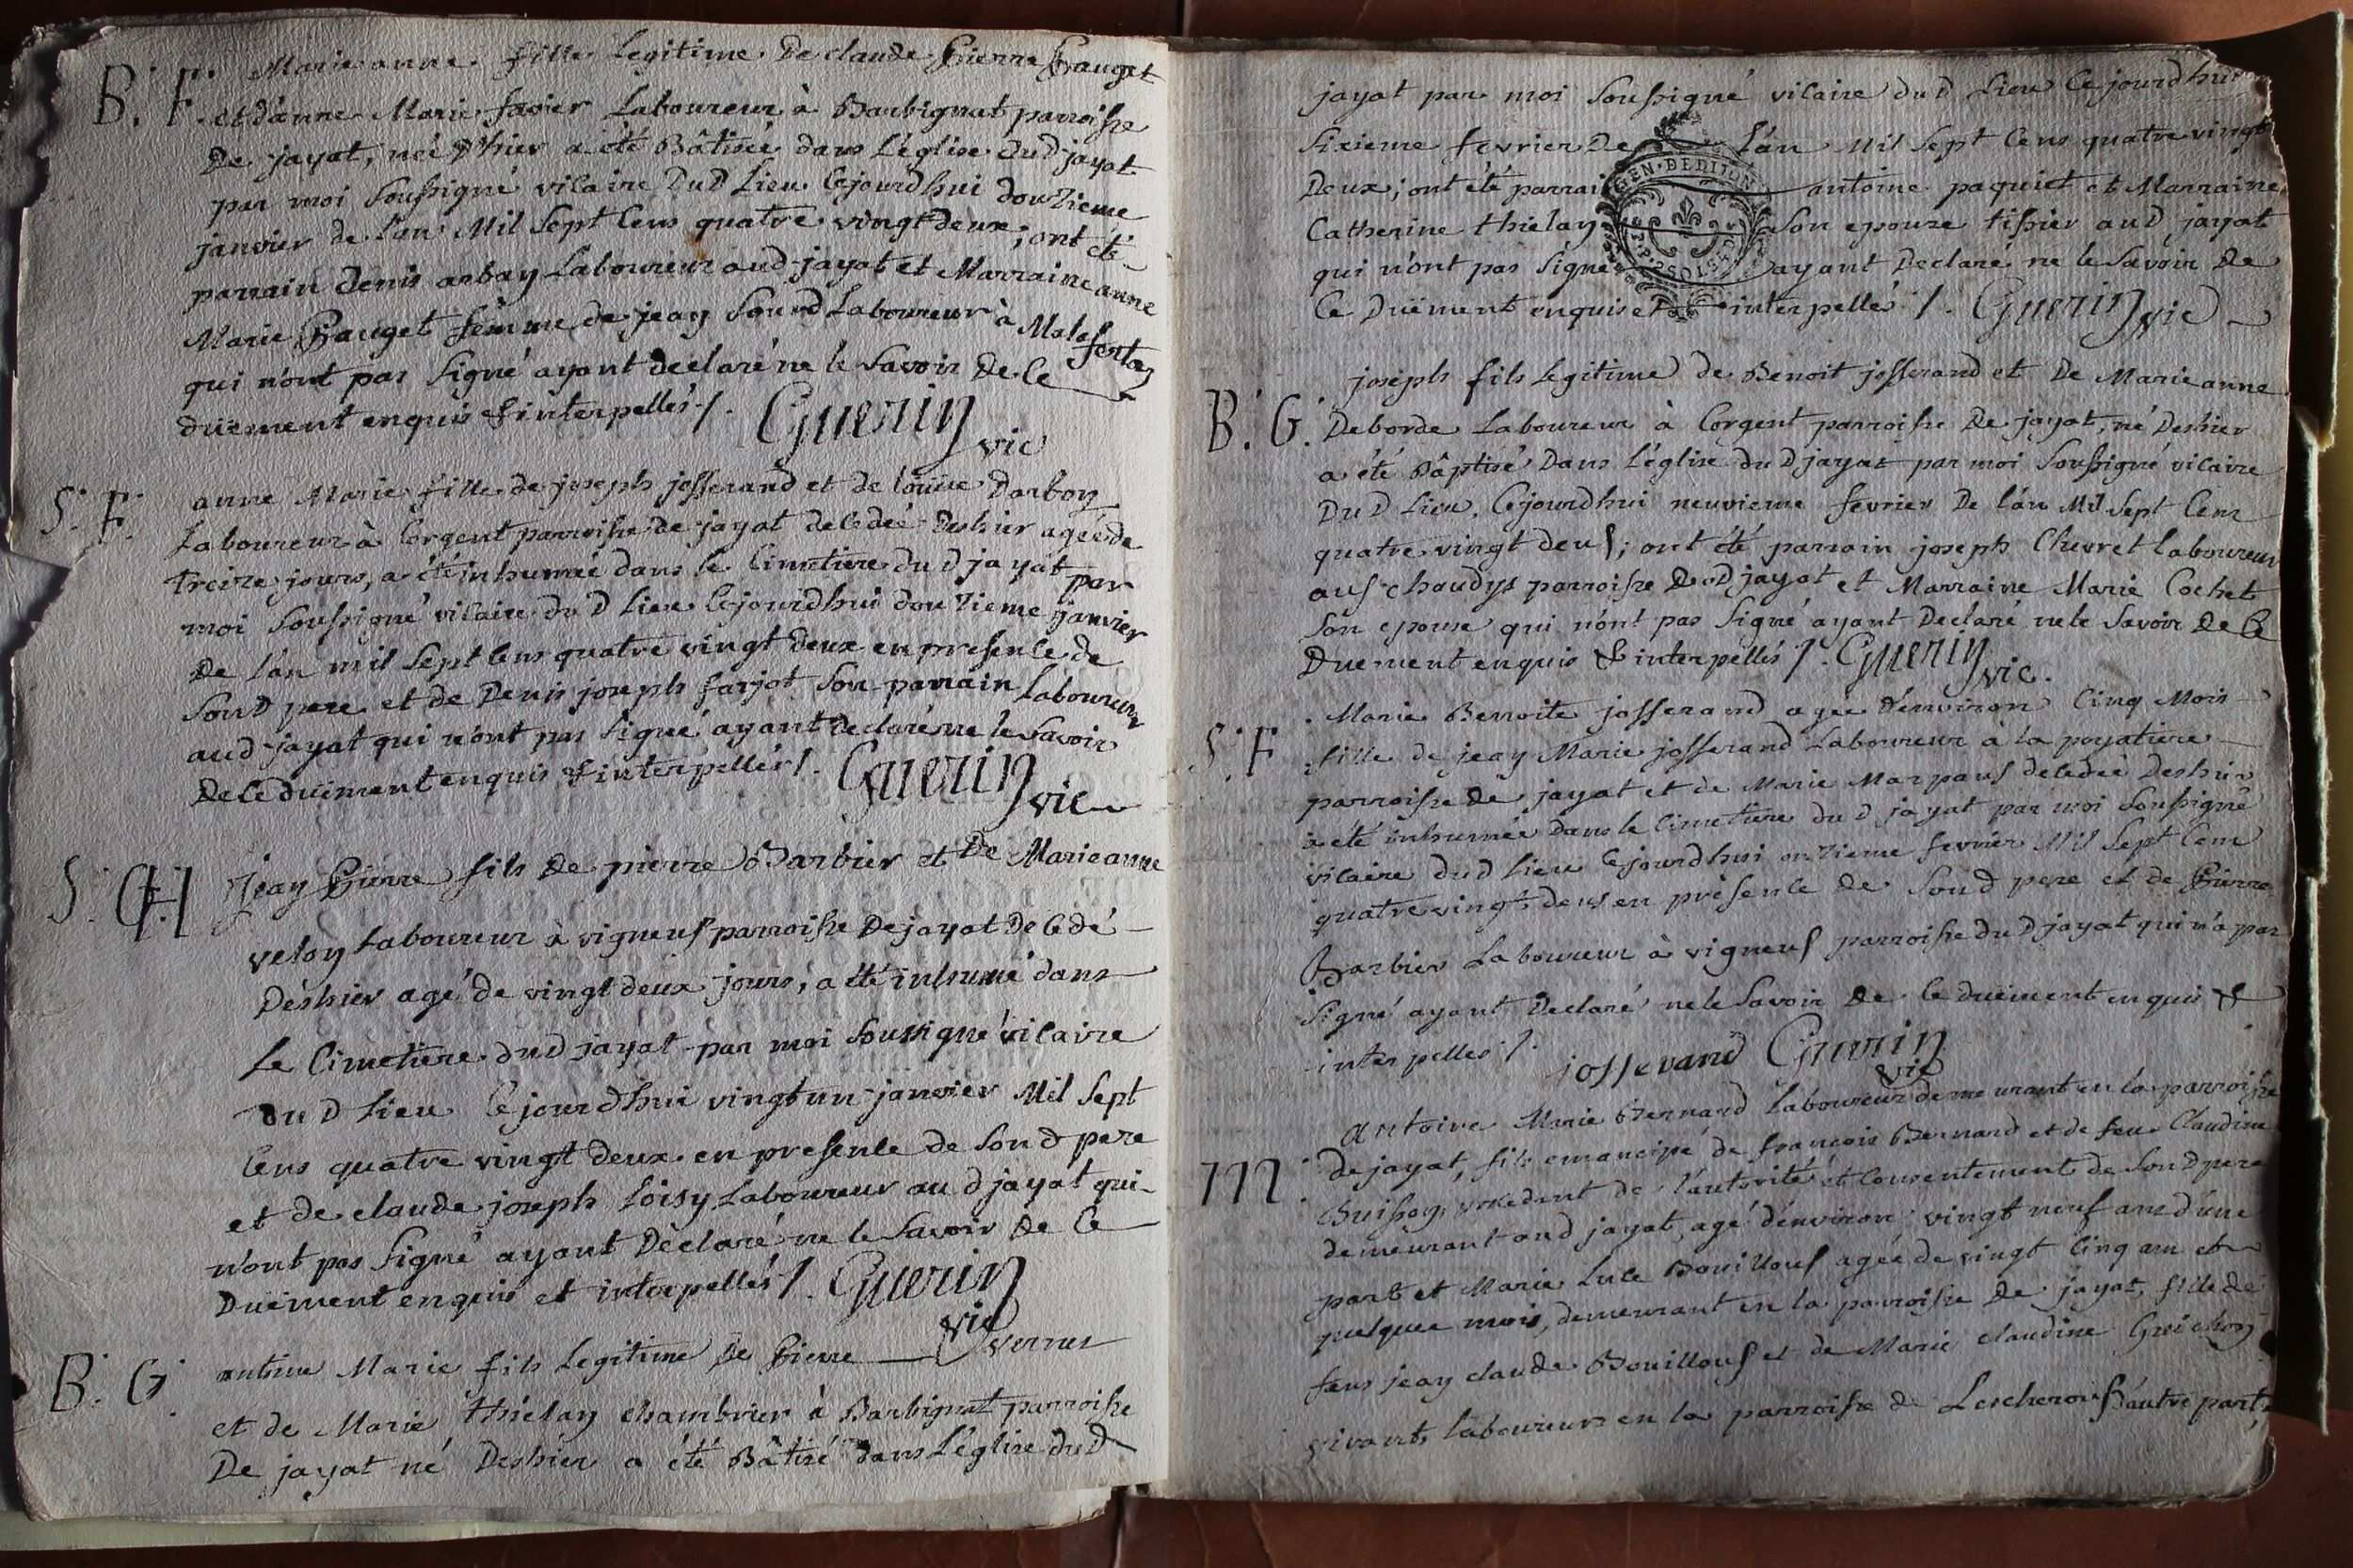 B. F. Marie anne fille legitime De claude Pierre Pauget
et d'anne Marie favier Laboureur à Barbignat parroisse
De jayat, née D'hier a été Bâtisée dans L'église dud jayat
par moi Soussigné vicaire DuD Lieu Cejourdhui douzieme
janvier de L'an Mil Sept Cens quatre vingt deux; ont été
parrain denis arbay Laboureur aud jayat et Marraine anne
Marie Pauget femme de jean Sourd Laboureur à Malafertay
qui n'ont pas Signé ayant declaré ne le Savoir De Ce
duëment enquis & interpellés /. Guerin vic
S. F. anne Marie fille de joseph josserand et de loüise Darbon
Laboureur à Corgent parroisse de jayat decedée Deshier agée de
treize jours, a été inhumée dans le Cimetiere dud jayat par
moi Soussigné vicaire duD Lieu Cejourdhui douzieme janvier
De L'an mil Sept Cens quatre vingt deux en presence de
SonD pere et de Denis joseph farjot Son parrain Laboureur
aud jayat qui n'ont pas Signé ayant declaré ne le Savoir
De Ce duëment enquis & interpellés /. Guerin vic
S. G. Jean Pierre fils De pierre Barbier et De Marie anne
velon Laboureur à vigneuf parroisse De jayat Decedé
Deshier agé de vingt deux jours, a été inhumé dans
Le Cimetiere dud jayat par moi Soussigné vicaire
duD Lieu Cejourdhui vingt un janvier Mil Sept
Cens quatre vingt deux en presence de Sond pere
et de claude joseph Loisy Laboureur aud jayat qui
n'ont pas Signé ayant Déclaré ne le Savoir De Ce
Duëment enquis et interpellés /. Guerin vic
B. G. antoine Marie fils Legitime De Pierre vernes
et de Marie thielay chambrier à Barbignat parroisse
De jayat né Deshier a été Bâtisé dans L'église duD
jayat par moi Soussigné vicaire duD Lieu Cejourdhui
Sixieme fevrier De L'an Mil Sept Cens quatre vingt
Deux; ont été parrai antoine paquiet et Marraine
Catherine thielay Son epouse tissier auD jayat
qui n'ont pas Signé ayant Declaré ne le Savoir De
Ce Duëment enquis et interpellés /. Guerin vic
GEN. BED
joseph fils Legitime de Benoit josserand et De Marie anne
B. G. Deborde Laboureur à Corgent parroisse De jayat, né Deshier
a été Bâptisé Dans L'église duD jayat par moi Soussigné vicaire
DuD Lieu, Cejourdhui neuvieme fevrier De L'an Mil Sept Cens
quatre vingt deus; ont été parrain joseph Chevret laboureur
aus chaudys parroisse DuD jayat et Marraine Marie Cochet
Son epouse qui n'ont pas Signé ayant Declaré ne le Savoir De Ce
Duement enquis & interpellés /. Guerin vic.
Marie Benoite josserand agée d'environ Cinq Mois
S. F. fille de jean Marie josserand Laboureur à la poyatiere
parroisse De jayat et de Marie Marpaus decedée Deshier
a été inhumée dans le Cimetiere du D jayat par moi Soussigné
vicaire duD Lieu Cejourdhui onzieme fevrier Mil Sept Cens
quatre vingt deus en présence De Sond pere et de Pierre
Barbier Laboureur à vigneuf parroisse duD jayat qui n'a pas
Signé ayant Declaré ne le Savoir De Ce duëment enquis &
interpellés /. josserand Guerin vic
antoine Marie Bernard Laboureur demeurant en la parroisse
M. de jayat, fils emancipé de françois Bernard et de feue Claudine
Buisson, procedant de l'autorité et Consentement de Sond pere
demeurant aud jayat, agé d'environ vingt neuf ans d'une
part et Marie Luce Bouillous agée de vingt Cinq ans et
quelques mois, demeurant en la parroisse De jayat, fille de
feus jean claude Bouillous et de Marie claudine Guichon
vivants laboureurs en la parroisse de Lescherous d'autre part,